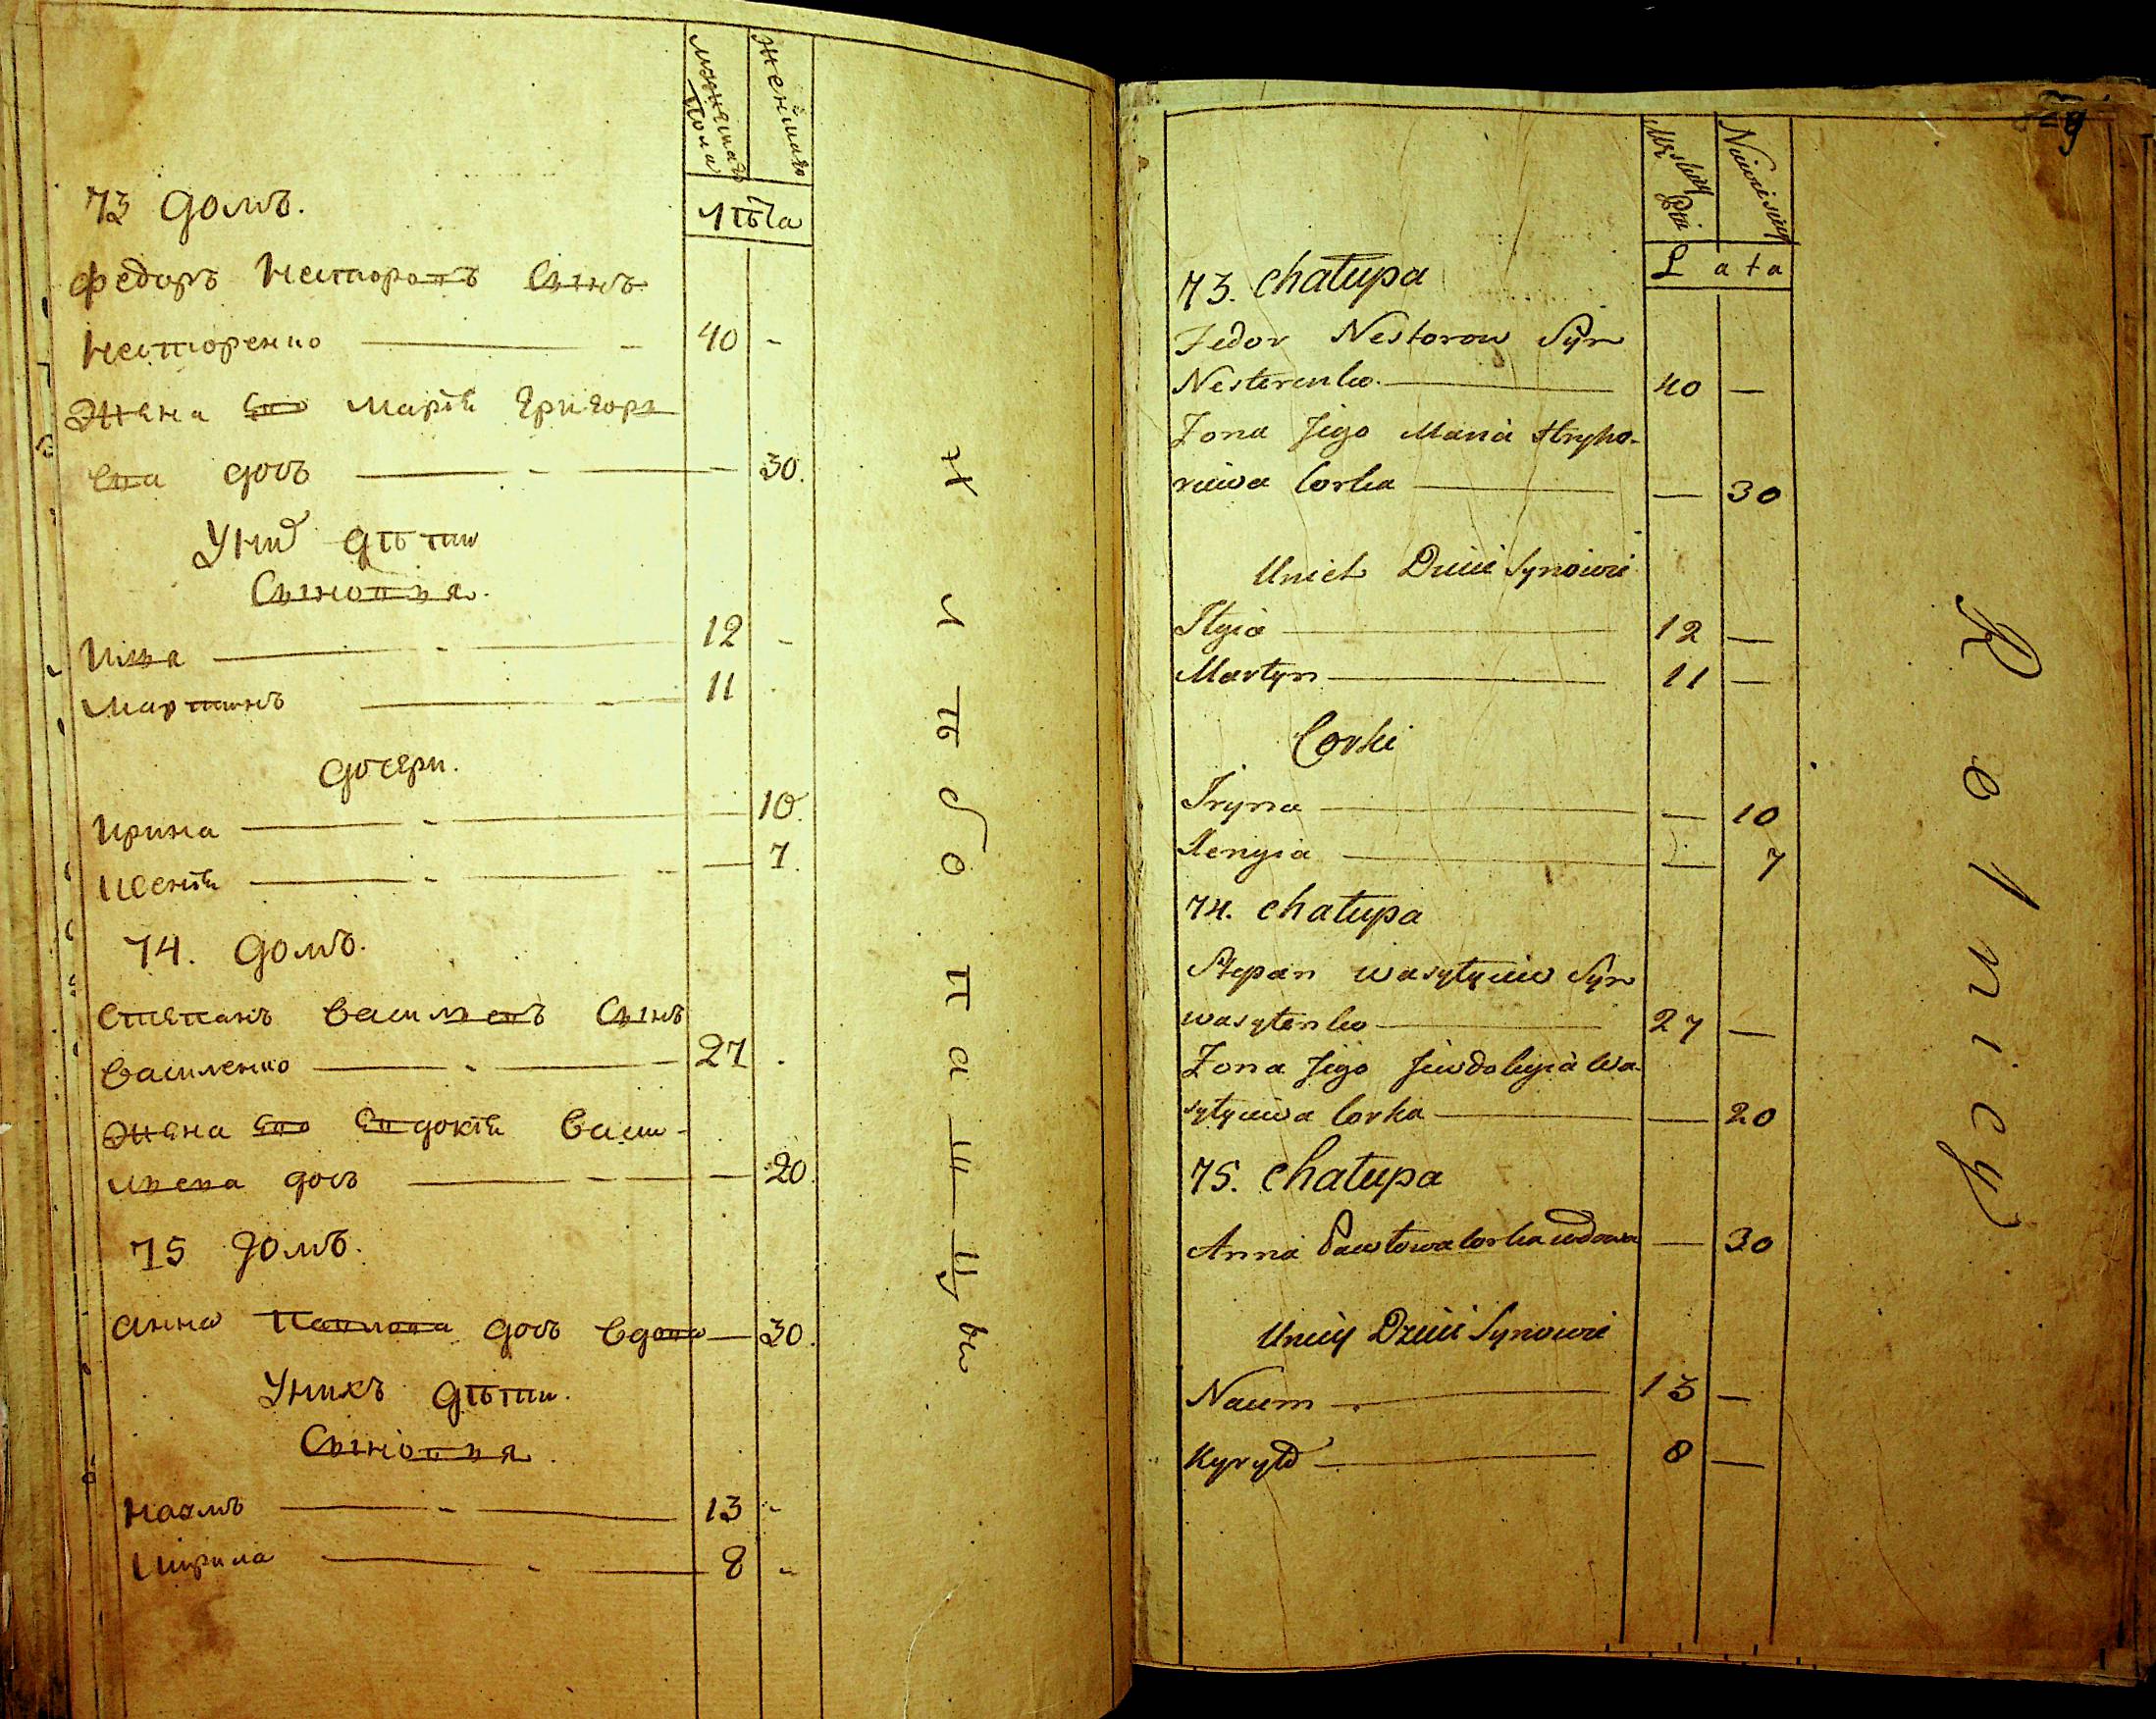 мужеска пола
женска
лѣта
73 домъ.
Федоръ Несторовъ Сынъ
Несторенко 40 -
Жена его Марія Григорі
ева дочь — 30.
У них дѣти
Сыновья.
Илья 12 -
Мартинъ 11 -
дочери.
Ирина — 10.
Ксенія — 7.
74. домъ.
Степанъ Васильевъ Сынъ
Василенко 27 -
Жена его Евдокія Васи-
льева дочь — 20.
75 домъ.
Анна Павлова дочь вдова — 30.
У нихъ дѣти.
Сыновья.
Наумъ 13 -
Кирила 8 -
Хлѣбопашцы
Męskiey Płci
Niewieściey
Lata
73. Chałupa
Fedor Nestorow Syn
Nesterenko 40 —
Zona Jego Maria Hryho-
riiwa Corka — 30
U nich Dzieci Synowie
Ilyia 12 —
Martyn 11 —
Corki
Iryna — 10
Xenyia — 7
74. Chałupa
Stepan Wasylyiew Syn
Wasylenko 27 —
Zona Jego Jewdokyia Wa-
sylyiewa Corka — 20
75. Chałupa
Anna Pawłowa Corka wdowa — 30
U niey Dzieci Synowie
Naum 13 —
Kyryło 8 —
Rolnicy